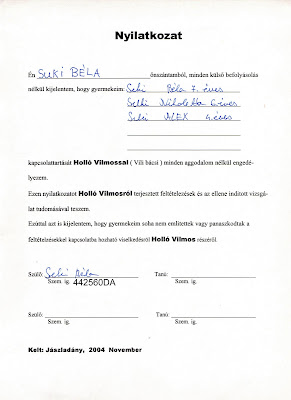 Nyilatkozat
Én SUKI BÉLA önszántamból, minden külső befolyásolás
nélkül kijelentem, hogy gyermekeim: Suki Béla 7. éves
Suki Nikoletta 6 éves
Suki ALEX 4. éves
kapcsolattartását Holló Vilmossal ( Vili bácsi ) minden aggodalom nélkül engedé-
lyezem.
Ezen nyilatkozatot Holló Vilmosról terjesztett feltételezések és az ellene indított vizsgá-
lat tudomásával teszem.
Ezúttal azt is kijelentem, hogy gyermekeim soha nem említettek vagy panaszkodtak a
feltételezésekkel kapcsolatba hozható viselkedésről Holló Vilmos részéről.
Szülő: Suki Béla Tanú:
Szem. ig. 442560DA Szem. ig.
Szülő: Tanú:
Szem. ig. Szem. ig.
Kelt: Jászladány, 2004 November